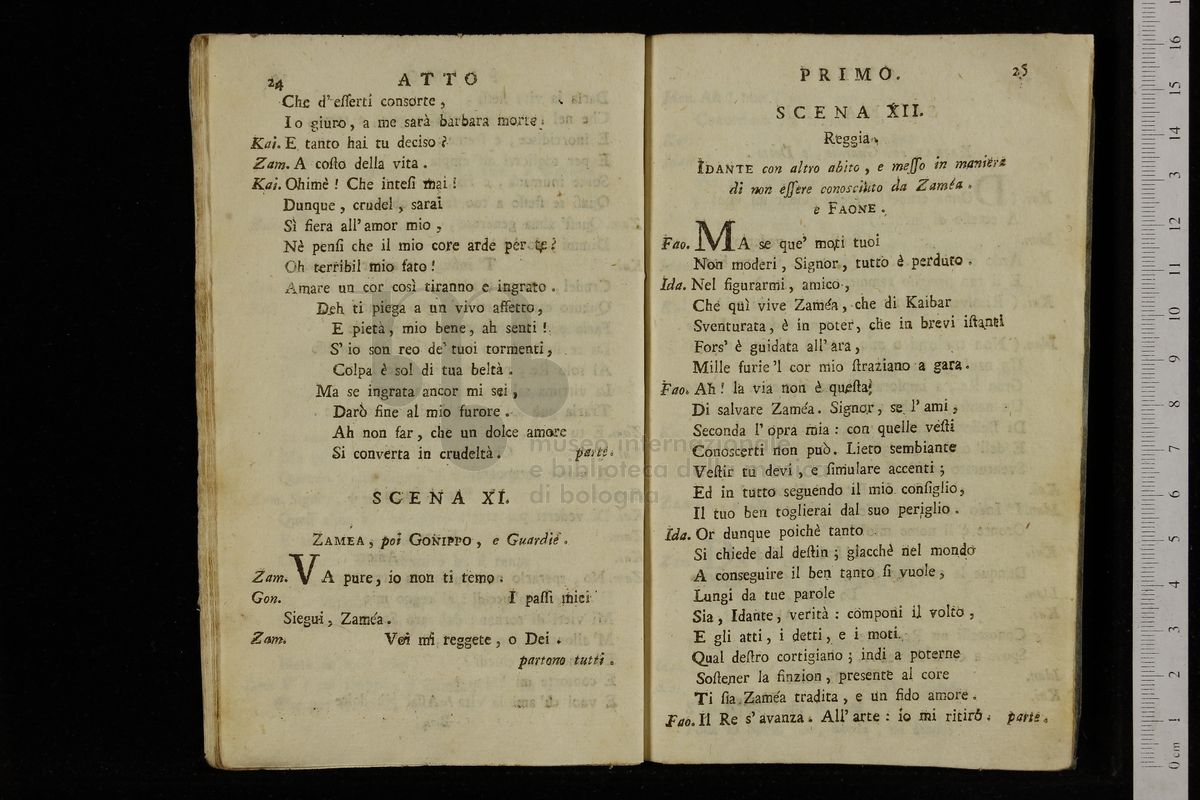 24 ATTO
Che d'esserti consorte,
Io giuro, a me sarà barbara morte.
Kai. E tanto hai tu deciso?
Zam. A costo della vita.
Kai. Ohimè! Che intesi mai!
Dunque, crudel, sarai
Sì fiera all'amor mio,
Nè pensi che il mio core arde per te?
Oh terribil mio fato!
Amare un cor così tiranno e ingrato.
Deh ti piega a un vivo affetto,
E pietà, mio bene, ah senti!
S'io son reo de' tuoi tormenti,
Colpa è sol di tua beltà.
Ma se ingrata ancor mi sei,
Darò fine al mio furore.
Ah non far, che un dolce amore
Si converta in crudeltà. parte.
SCENA XI.
ZAMEA, poi GONIPPO, e Guardie.
Zam. VA pure, io non ti temo.
Gon. I passi miei
Siegui, Zaméa.
Zam. Voi mi reggete, o Dei.
partono tutti.
PRIMO. 25
SCENA XII.
Reggia.
IDANTE con altro abito, e messo in maniera
di non essere conosciuto da Zaméa.
e FAONE.
Fao. MA se que' moti tuoi
Non moderi, Signor, tutto è perduto.
Ida. Nel figurarmi, amico,
Che quì vive Zaméa, che di Kaibar
Sventurata, è in poter, che in brevi istanti
Fors' è guidata all'ara,
Mille furie 'l cor mio straziano a gara.
Fao. Ah! la via non è questa
Di salvare Zaméa. Signor, se l'ami,
Seconda l'opra mia: con quelle vesti
Conoscerti non può. Lieto sembiante
Vestir tu devi, e simulare accenti;
Ed in tutto seguendo il mio consiglio,
Il tuo ben toglierai dal suo periglio.
Ida. Or dunque poichè tanto
Si chiede dal destin; giacchè nel mondo
A conseguire il ben tanto si vuole,
Lungi da tue parole
Sia, Idante, verità: componi il volto,
E gli atti, i detti, e i moti.
Qual destro cortigiano; indi a poterne
Sostener la finzion, presente al core
Ti sia Zaméa tradita, e un fido amore.
Fao. Il Re s'avanza. All'arte: io mi ritirò. parte.
museo internazionale
e biblioteca della musica
di bologna
0 cm 1 2 3 4 5 6 7 8 9 10 11 12 13 14 15 16